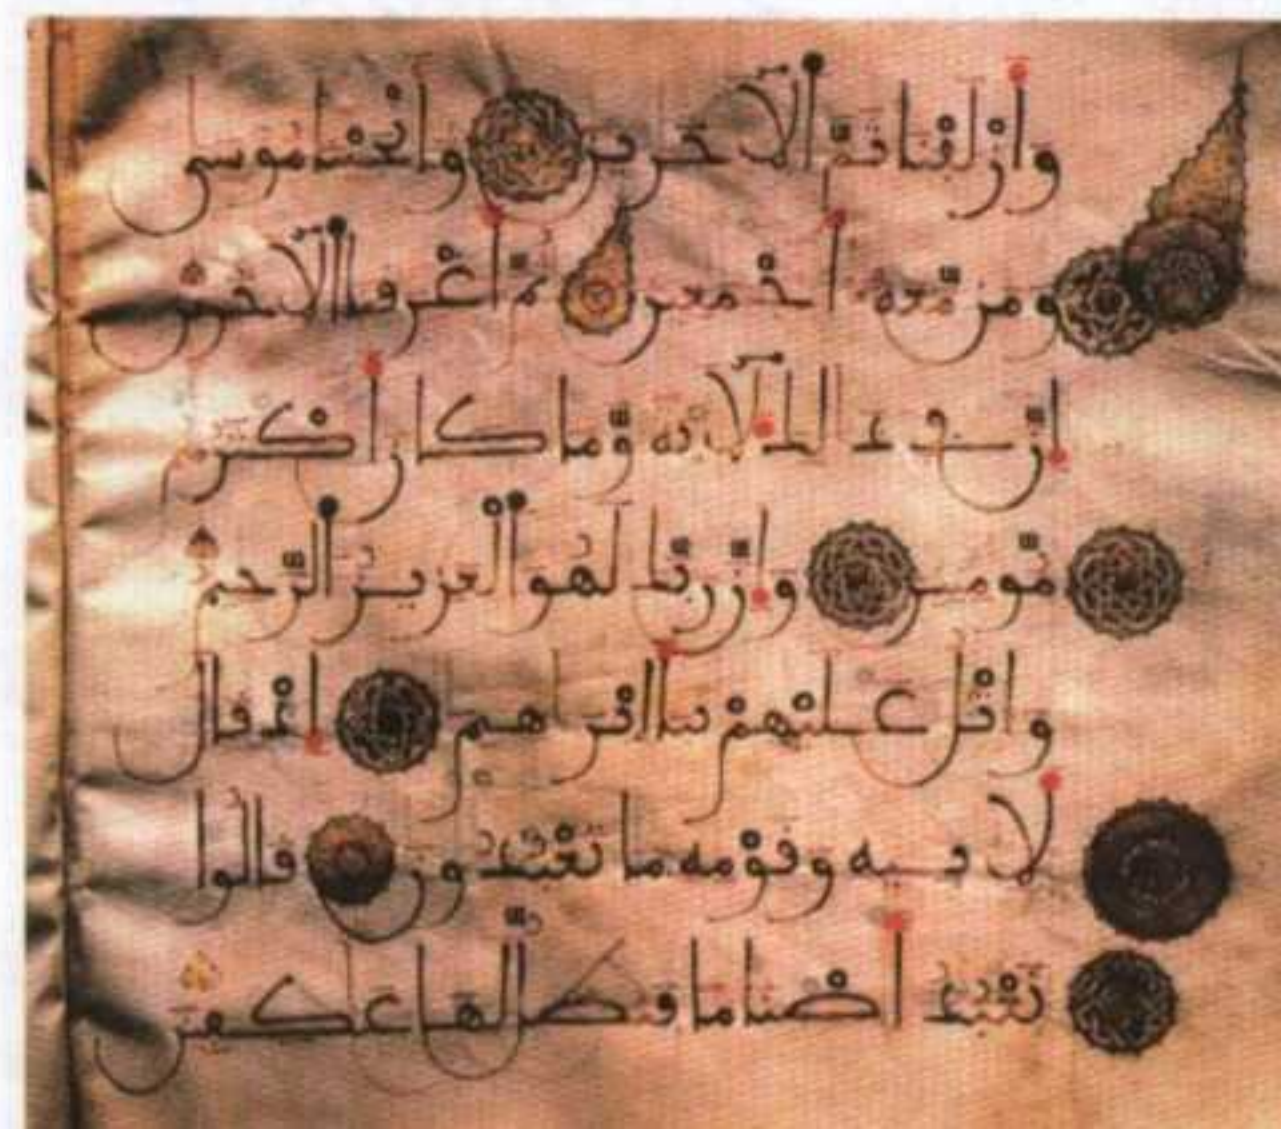 وَأَزْلَفْنَا ثَمَّ ٱلْأَخَرِينَ وَأَنْجَيْنَا مُوسَىٰ
وَمَن مَّعَهُ أَجْمَعِينَ ثُمَّ أَغْرَقْنَا ٱلْأَخَرِينَ
إِنَّ فِي ذَٰلِكَ لَأَيَةً وَمَا كَانَ أَكْثَرُهُم
مُّومِنِينَ وَإِنَّ رَبَّكَ لَهُوَ ٱلْعَزِيزُ ٱلرَّحِيمُ
وَٱتْلُ عَلَيْهِمْ نَبَأَ إِبْرَاهِيمَ إِذْ قَالَ
لِأَبِيهِ وَقَوْمِهِ مَا تَعْبُدُونَ قَالُوا
نَعْبُدُ أَصْنَامًا فَنَظَلُّ لَهَا عَٰكِفِينَ